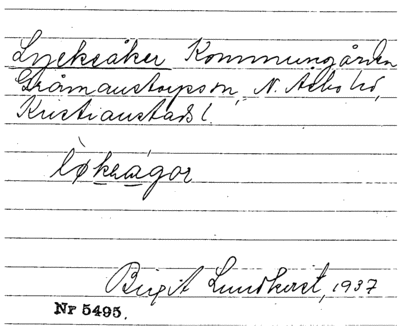 Lycksåker Kommungården
Gråmanstorpssn, N. Åsbo hd,
Kristianstads l.
løksågor
Birgit Lundkvist, 1937
Nr 5495.